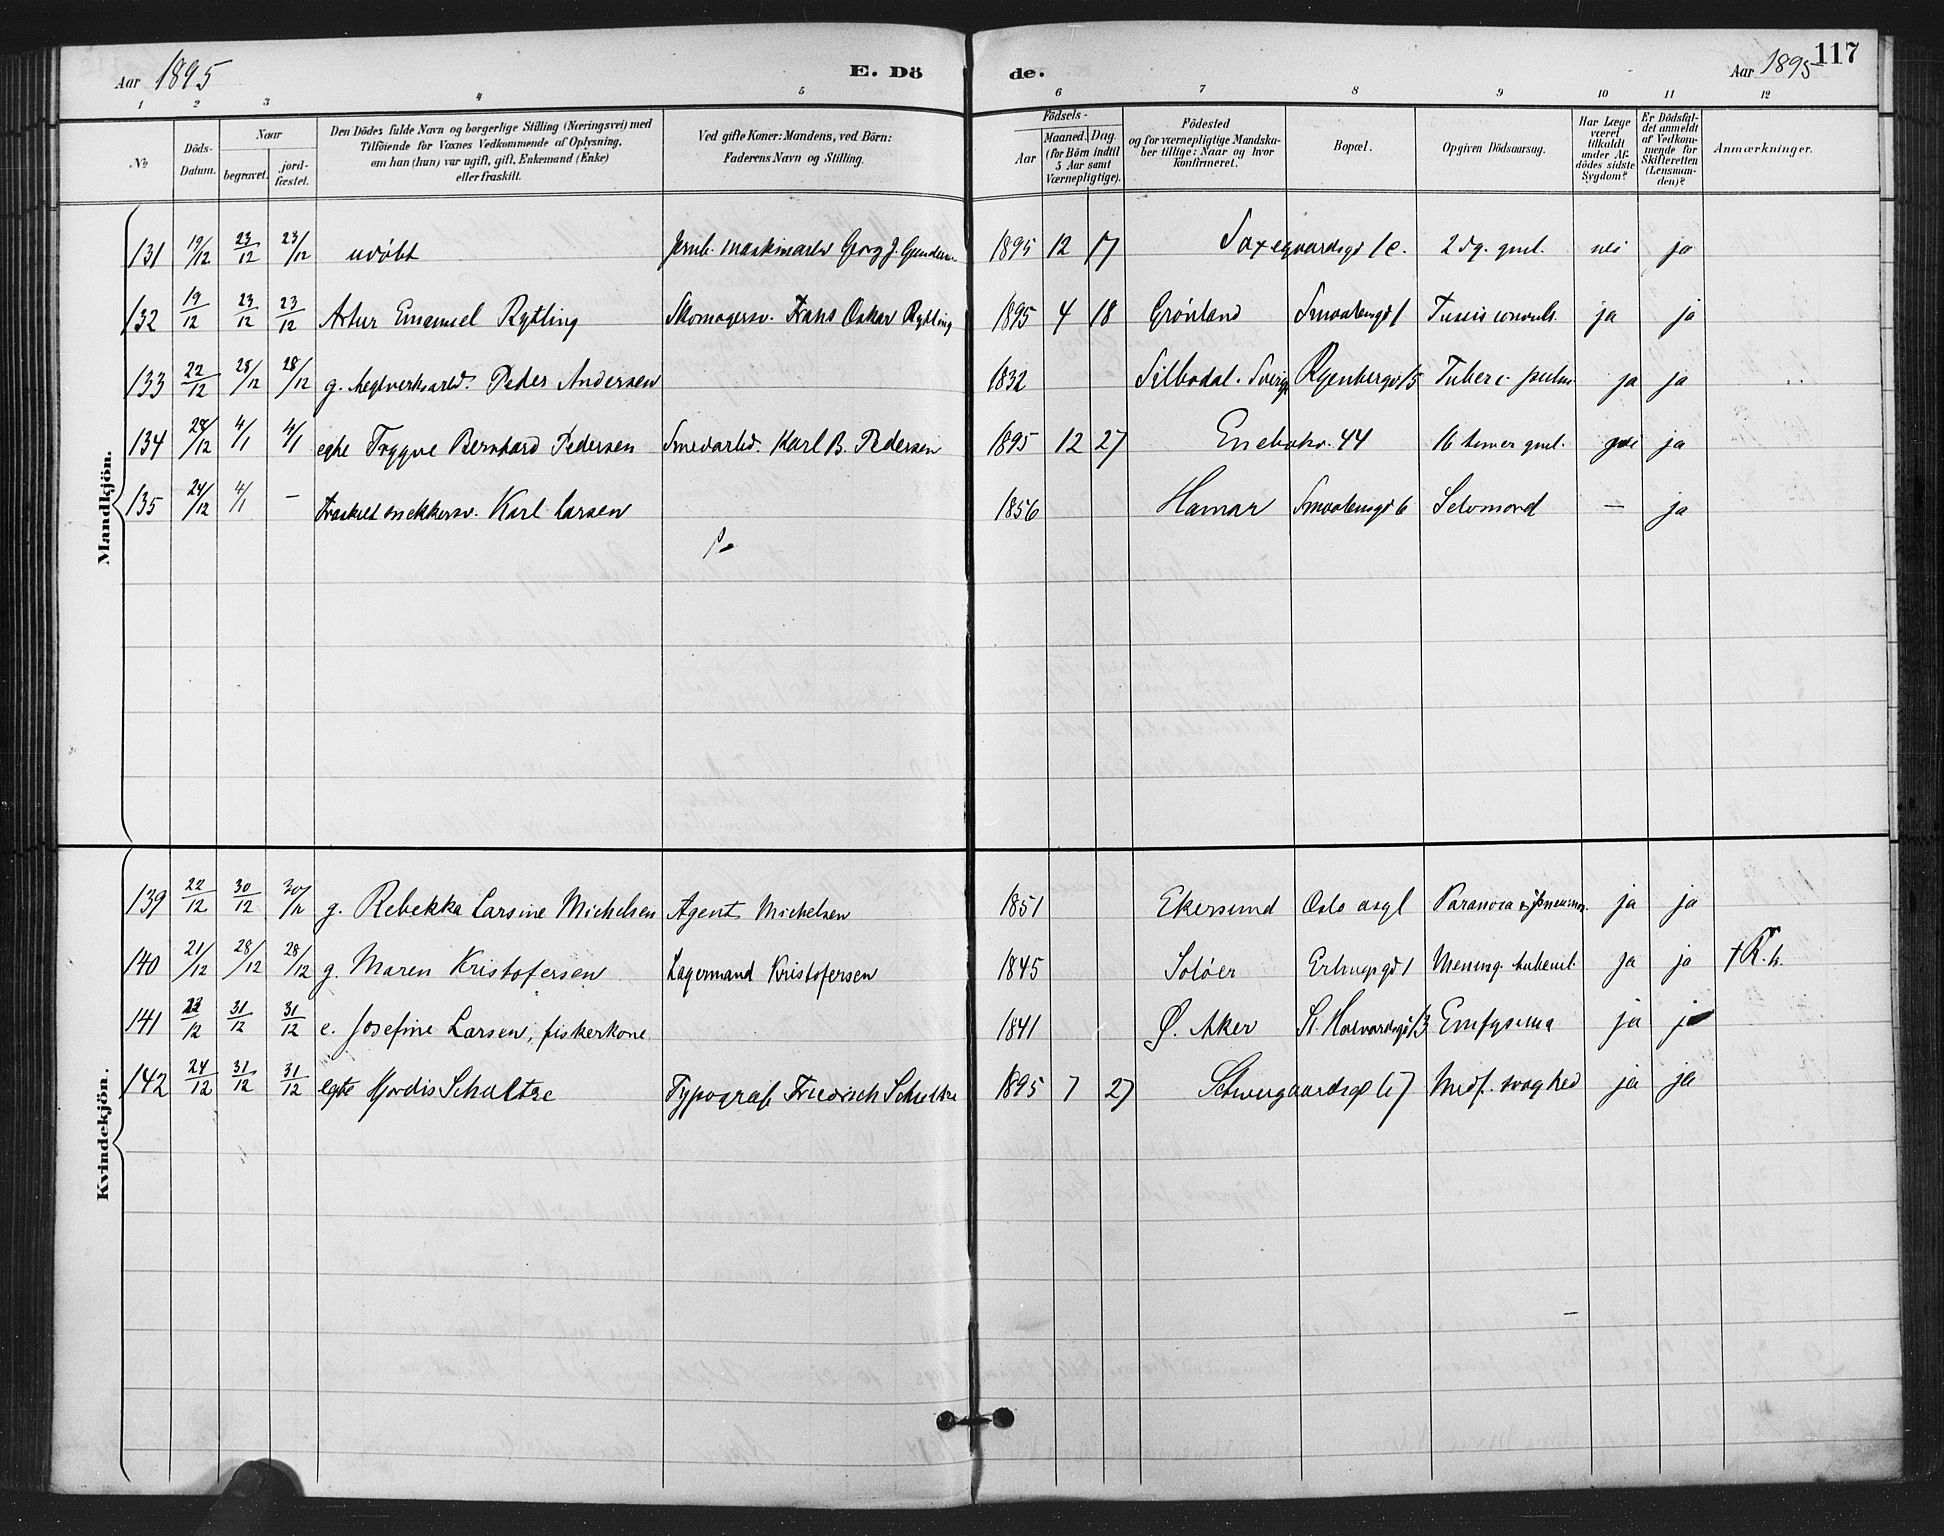 Aar 1895 E. Dö de. Aar 1895 117
1 2 3 4 5 6 7 8 9 10 11 12
№ Döds-Datum. Naar begravet. jord-fæstet. Den Dödes fulde Navn og borgerlige Stilling (Næringsvei) med Tilföiende for Voxnes Vedkommende af Oplysning, om han (hun) var ugift, gift, Enkemand (Enke) eller fraskilt. Ved gifte Koner: Mandens, ved Börn: Faderens Navn og Stilling. Födsels- Aar Maaned. Dag. (for Börn indtil 5 Aar samt Værnepligtige). Födested og for værnepligtige Mandskaber tillige: Naar og hvor konfirmeret. Bopæl. Opgiven Dödsaarsag. Har Læge været tilkaldt under Afdödes sidste Sygdom? Er Dödsfaldet anmeldt af Vedkommende for Skifteretten (Lensmanden)? Anmærkninger.
Mandkjön.
131 19/12 23/12 23/12 udöbt Jernb. maskinarbd Georg J. Gundersen 1895 12 17 Saxegaardsgd 1c. 2 dg. gml. nei ja
132 19/12 23/12 23/12 Artur Emanuel Rytling Skomagersv. Frans Oskar Rytling 1895 4 18 Grönland Smaalensgd 1 Tussis convuls. ja ja
133 22/12 28/12 28/12 g. teglverksarbd. Peder Andersen 1832 Silbodal. Sverige Ryenbergv 15 Tuberc. pulm. ja ja
134 28/12 4/1 4/1 egte Trygve Bernhard Pedersen Smedarbd. Karl B. Pedersen 1895 12 27 Enebakv. 44 16 timer gml. nei ja
135 24/12 4/1 – Fraskilt snekkersv. Karl Larsen 1856 Hamar Smaalensgd 6 Selvmord – ja
Kvindekjön.
139 22/12 30/12 30/12 g. Rebekka Larsine Michelsen Agent Michelsen 1851 Ekersund Oslo asyl Paranoia & pneumon. ja ja
140 21/12 28/12 28/12 g. Maren Kristofersen Lagermand Kristofersen 1845 Solöer 1 Mening. tubercul. ja ja † R. h.
141 23/12 31/12 31/12 e. Josefine Larsen, fiskerkone. 1841 Ø. Aker St. Halvardsgd 13 Emfysema ja ja
142 24/12 31/12 31/12 egte Hjordis Schultze Typograf Friedrich Schultze 1895 7 27 Schweigaardsgd 67 Medf. svaghed ja ja